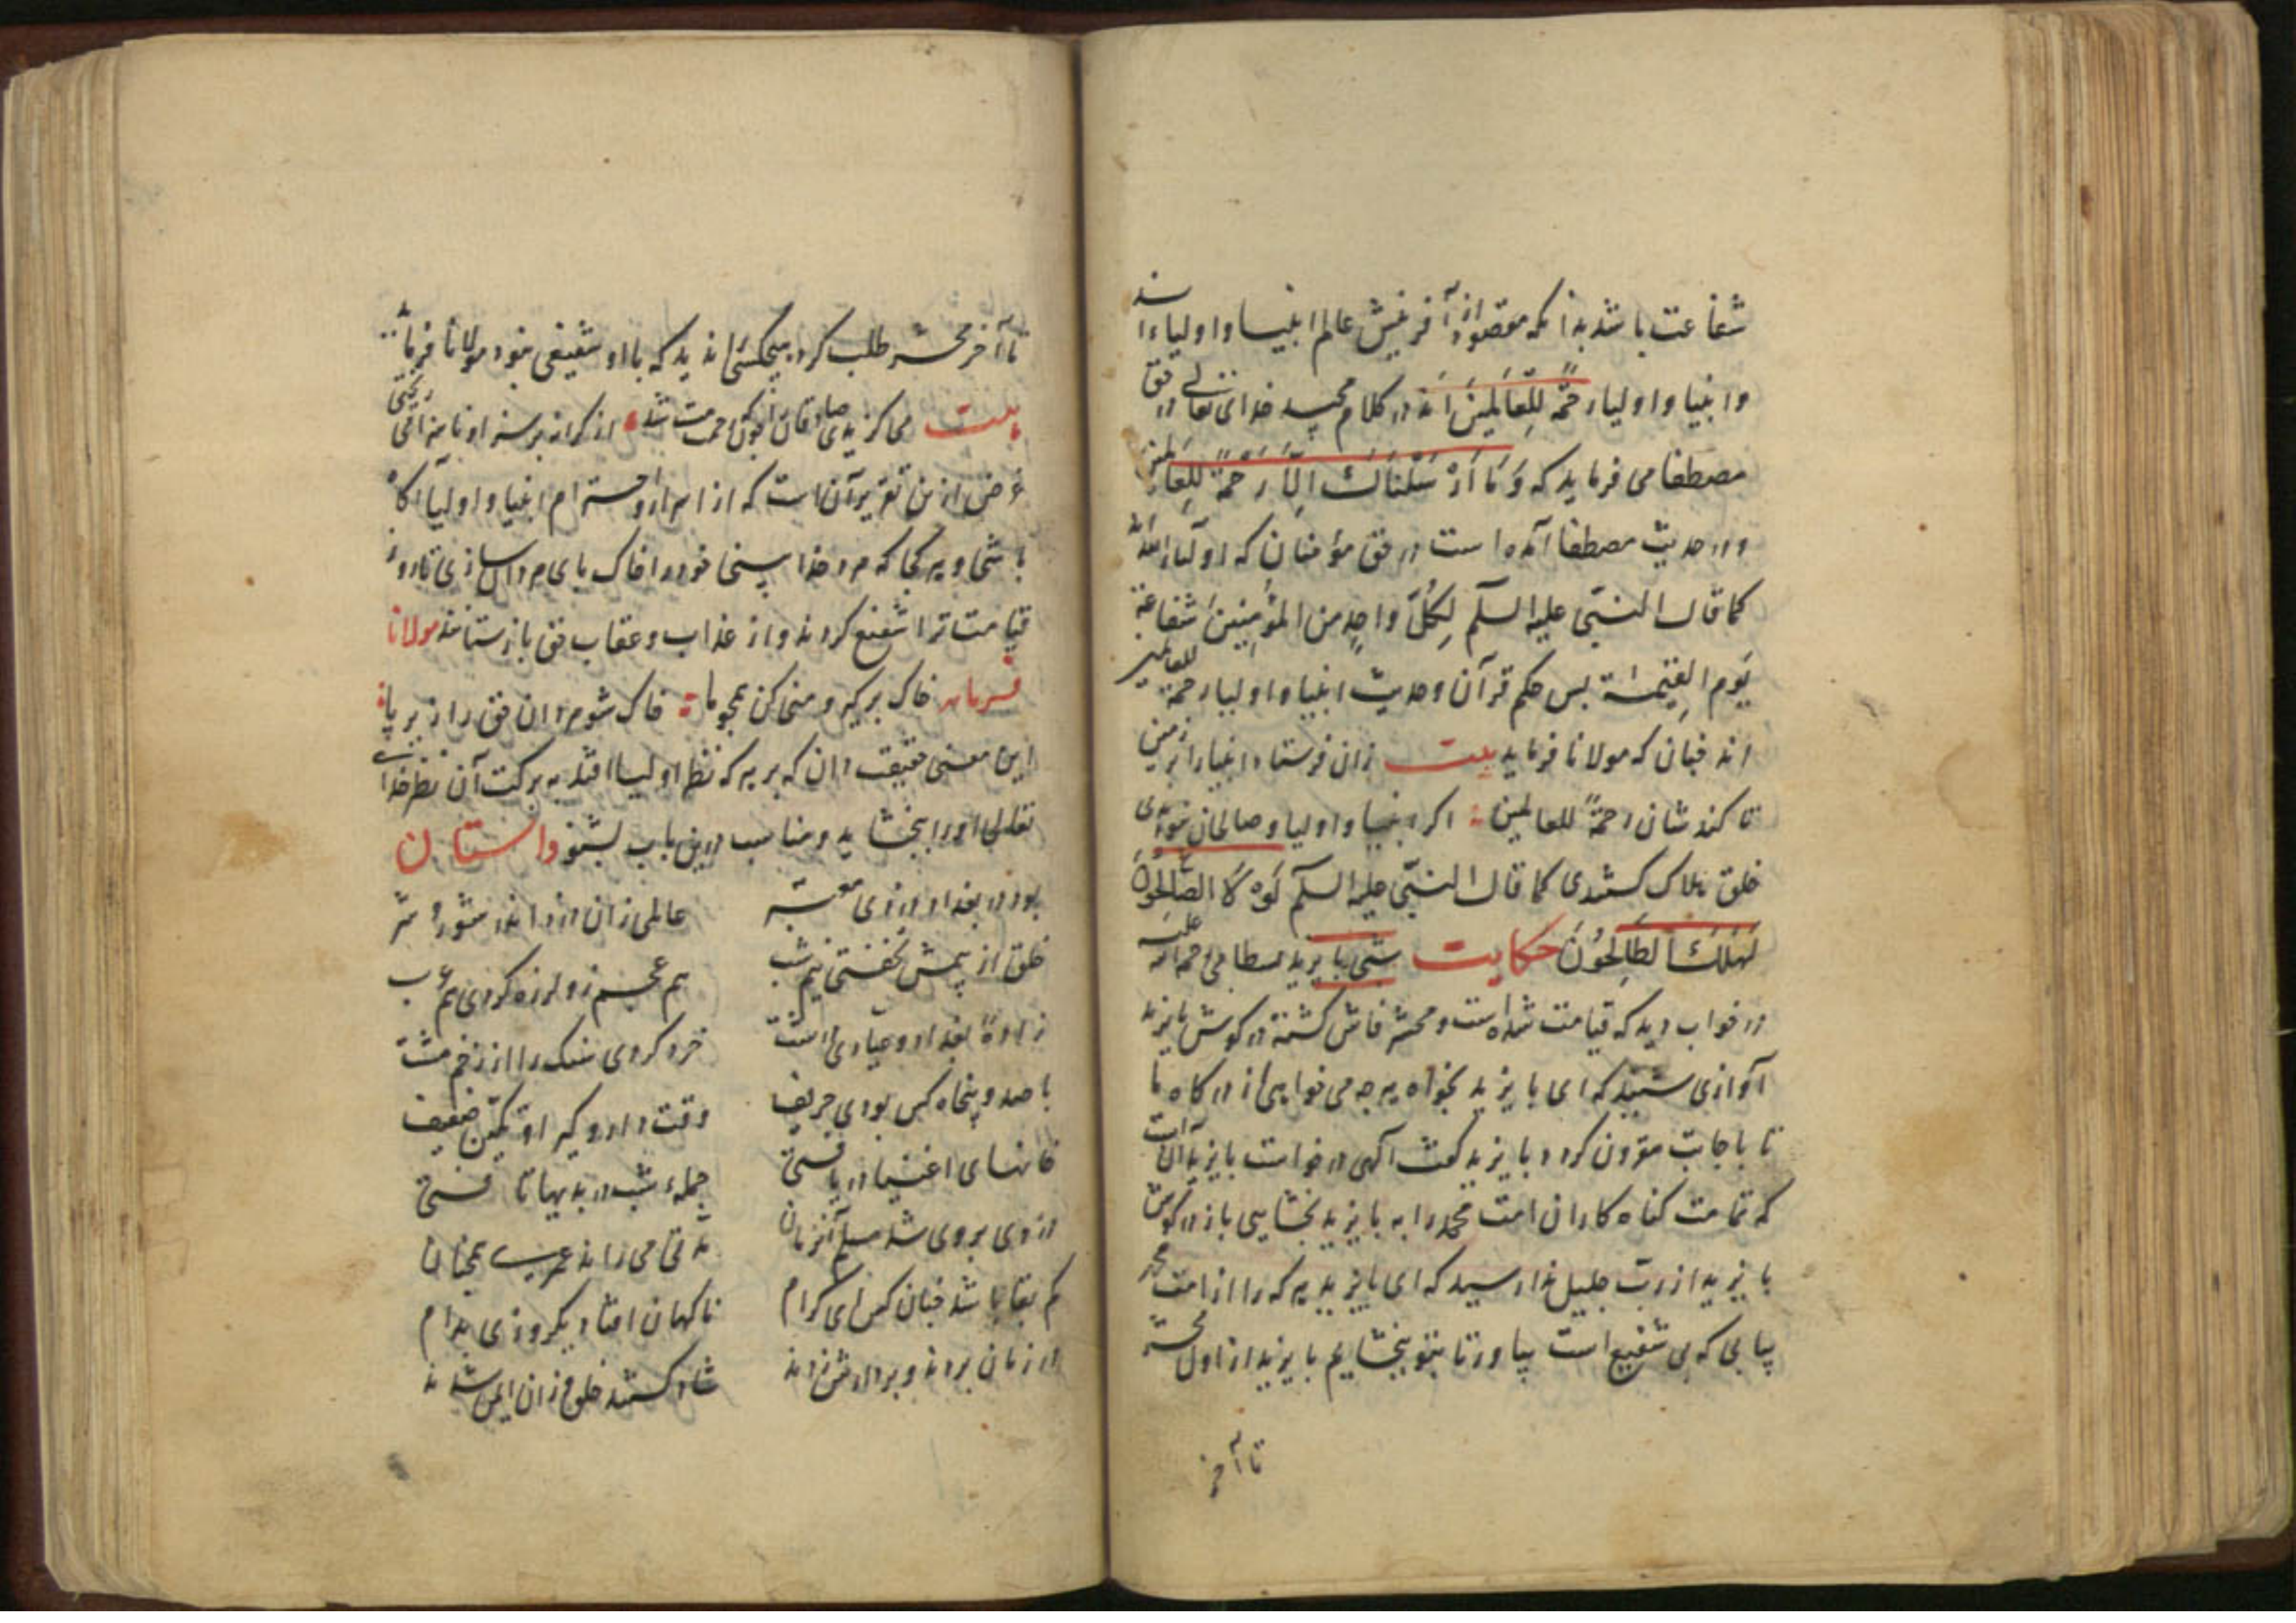 شفاعت باشد بدانکه مقصود از آفرینش عالم انبیا و اولیاء اند
وانبیا و اولیا رحمةً للعَالَمینَ اَند در کلام مجید خدای تعالی در حق
مصطفا می فرماید که وَمَا اَرْسَلْنَاکَ اِلَّا رَحْمَةً لِلعَالَمینَ
و در حدیث مصطفا آمده است در حق مؤمنان که اولیاء الله اند
کما قال النبّی علیه السلم لِکُلِّ واحِدٍ من المؤمِنِینَ شفاعة
یَوم القِیٰمة بس حکم قرآن و حدیث انبیا و اولیا رحمة للعالمین
اند چنان که مولانا فرماید بیت زان فرستاد انبیا را بر زمین
تا کند شان رحمةً للعالمین اکر انبیا و اولیا و صالحان نبودندی
خلق هلاک کشتندی کما قال النبّی علیه السلم لَوْلَا الصَّالِحُونَ
لَهَلَکَ الطَالِحُونَ حکایت شبی بایزید بسطامی رحمة الله علیه
در خواب دید که قیامت شده است و محشر فاش کشته در کوش بایزید
آوازی شنید که ای بایزید بخواه هر چه می خواهی از درکاه ما
تا باجابت مقرون کردد بایزید کفت آلهی درخواست بایزید آن است
که تمامت کناه کاران امت محمد را به بایزید بخشایی باز در کوش
بایزید از ربّ جلیل ندا رسید که ای بایزید هر که را از امت محمد
بیابی که بی شفیع است بیاور تا بتو بخشایم بایزید از اول محشر
تا آخر
تا آخر محشر طلب کرد هیچکسی را ندید که با او شفیعی نبود مولانا فرماید
بیت می کزیدی صادقان را چون رحمت شد از کرانه برسند او نامزد
غرض از ین تقریر آن است که از اسرار و احترام انبیا و اولیا آکاه
باشی و هر کجا که مرد خدا بینی خود را خاک پای مردان سازی تا روز
قیامت ترا شفیع کردند و از عذاب و عقاب حق بازستانند مولانا
فرماید خاک برکیر و منی کن همچو ما خاک شو مردان حق را زیر پا
این معنی حقیقت دان که بر هر که نظر اولیا افتد به برکت آن نظر خدای
تعالی او را ببخشاید و مناسب درین باب بشنو داستان
بود در بغداد دزدی معتبر عالمی زان دزد اندر شور و شر
خلق از بیمش نخفتی نیم شب هم عجم زو لرزه کردی هم عرب
زادهٔ بغداد و عیاری درشت خرد کردی سنک را از زخم مشت
با صد و پنجاه کس بودی حریف وقت دار و کیر او کمین ضعیف
خانهای اغنیا دریافتی جمله شب در بدیها تافتی
دزدی بر وی شد مسلم آن زمان مدتی می راند عمری همچنان
کم بقا باشد چنان کس ای کرام ناکهان افتاد یکروزی بدام
در زمان بردند و بر دارش زدند شاد کشتند خلق زان ایمن شدند